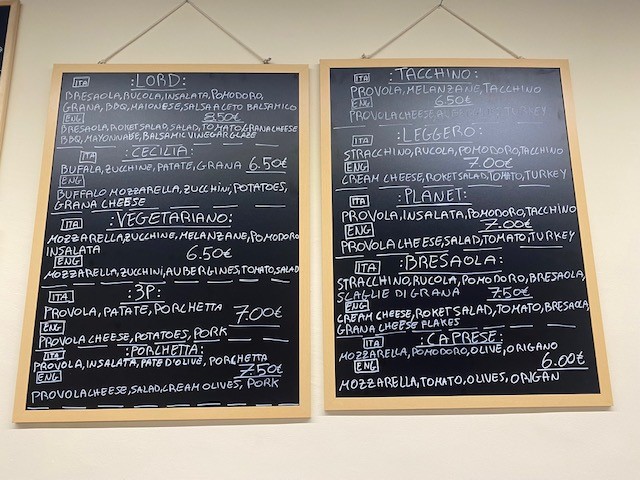 ITA :LORD:
BRESAOLA, RUCOLA, INSALATA, POMODORO,
GRANA, BBQ, MAIONESE, SALSA ACETO BALSAMICO
ENG 8.50€
BRESAOLA, ROKET SALAD, SALAD, TOMATO, GRANA CHEESE
BBQ, MAYONNABE, BALSAMIC VINEGAR GLAZE
ITA :CECILIA:
BUFALA, ZUCCHINE, PATATE, GRANA 6.50€
ENG
BUFFALO MOZZARELLA, ZUCCHINI, POTATOES,
GRANA CHEESE
ITA :VEGETARIANO:
MOZZARELLA, ZUCCHINE, MELANZANE, POMODORO
INSALATA 6.50€
ENG
MOZZARELLA, ZUCCHINI, AUBERGINES, TOMATO, SALAD
ITA :3P:
PROVOLA, PATATE, PORCHETTA 7.00€
ENG
PROVOLA CHEESE, POTATOES, PORK
ITA :PORCHETTA:
PROVOLA, INSALATA, PATE D'OLIVE, PORCHETTA
ENG 7.50€
PROVOLA CHEESE, SALAD, CREAM OLIVES, PORK
ITA :TACCHINO:
PROVOLA, MELANZANE, TACCHINO
ENG 6.50€
PROVOLA CHEESE, TURKEY
ITA :LEGGERO:
STRACCHINO, RUCOLA, POMODORO, TACCHINO
ENG 7.00€
CREAM CHEESE, ROKET SALAD, TOMATO, TURKEY
ITA :PLANET:
PROVOLA, INSALATA, POMODORO, TACCHINO
ENG 7.00€
PROVOLA CHEESE, SALAD, TOMATO, TURKEY
ITA :BRESAOLA:
STRACCHINO, RUCOLA, POMODORO, BRESAOLA,
SCAGLIE DI GRANA 7.50€
ENG
CREAM CHEESE, ROKET SALAD, TOMATO, BRESAOLA
GRANA CHEESE FLAKES
ITA :CAPRESE:
MOZZARELLA, POMODORO, OLIVE, ORIGANO
ENG 6.00€
MOZZARELLA, TOMATO, OLIVES, ORIGAN